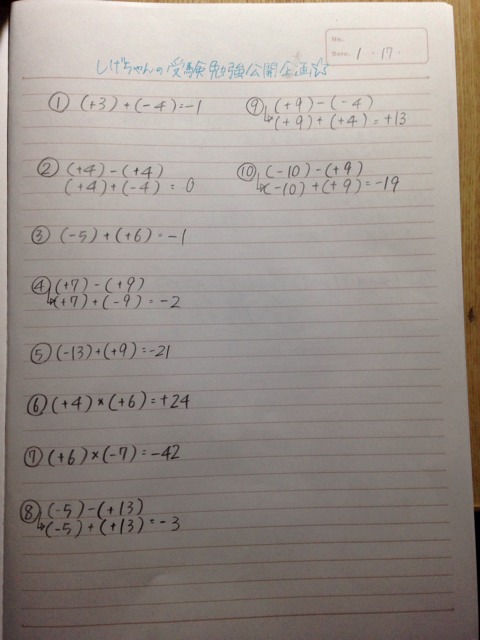 No.
Date. 1 ・ 17 ・
しげちゃんの受験勉強公開企画☆彡
① (+3)+(-4)=-1
② (+4)-(+4)
(+4)+(-4) = 0
③ (-5)+(+6)=-1
④ (+7)-(+9)
↳(+7)+(-9) = -2
⑤ (-13)+(+9)=-21
⑥ (+4)×(+6)=+24
⑦ (+6)×(-7)=-42
⑧ (-5)-(+13)
↳(-5)+(+13)=-3
⑨ (+9)-(-4)
↳(+9)+(+4)=+13
⑩ (-10)-(+9)
↳(-10)+(+9)=-19